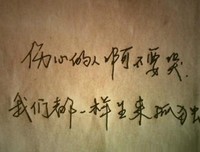 伤心的人啊不要哭
我们都一样生来孤独